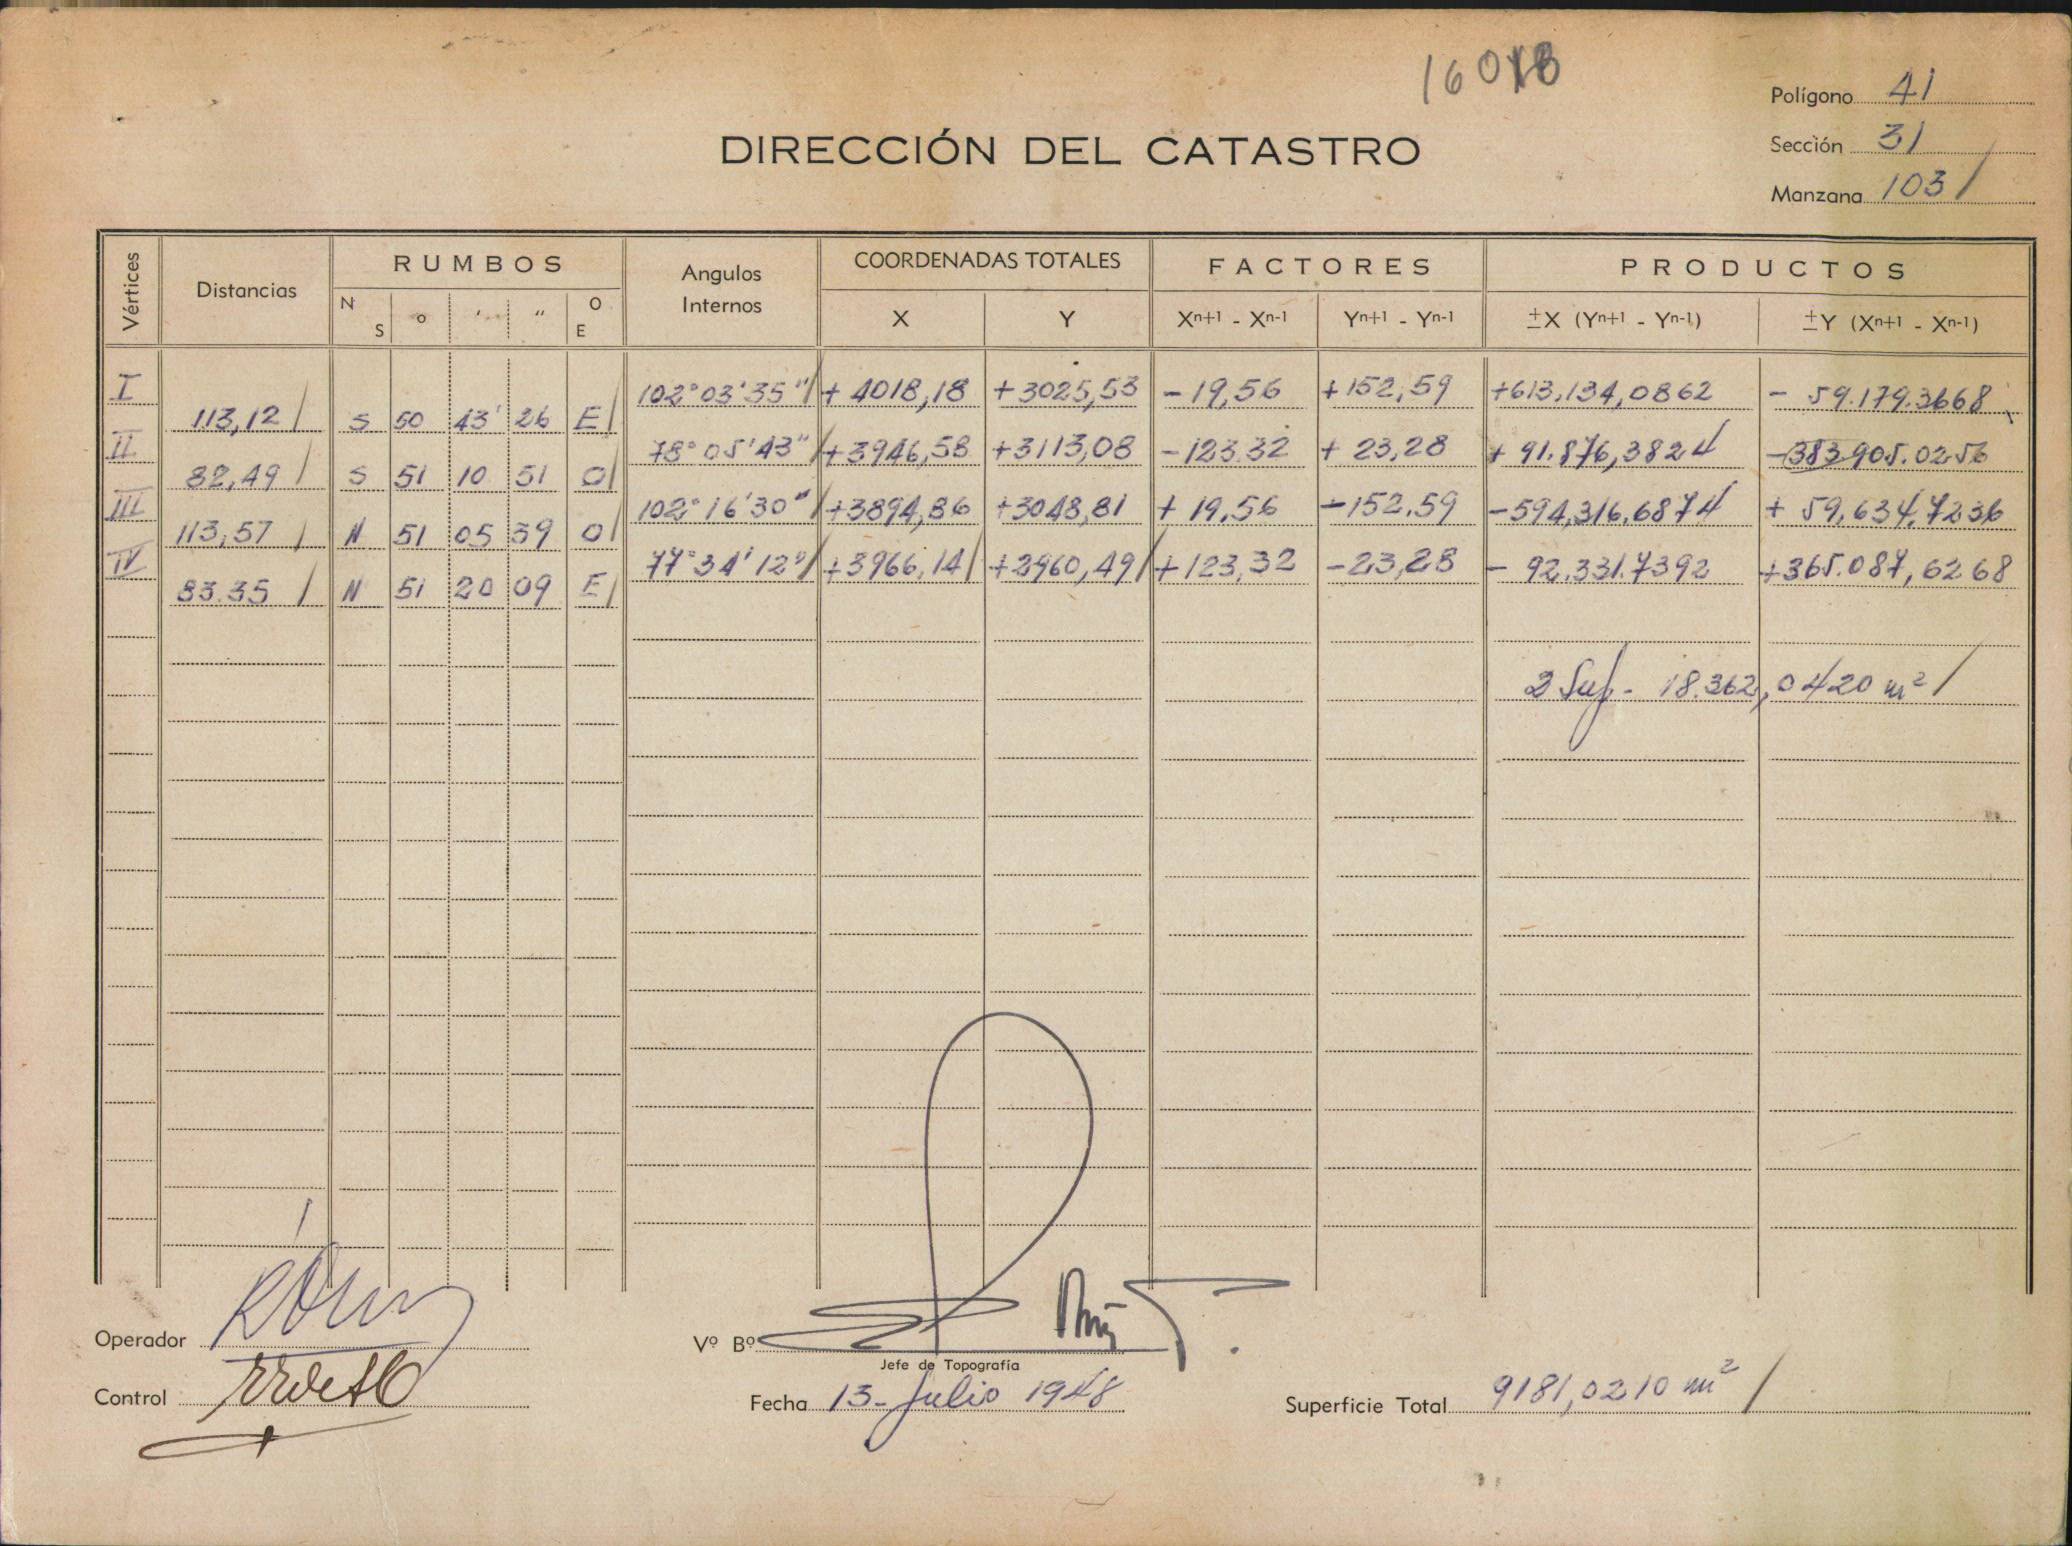 Polígono 41
DIRECCIÓN DEL CATASTRO
Sección 31
Manzana 103
Vértices Distancias RUMBOS Angulos Internos COORDENADAS TOTALES FACTORES PRODUCTOS
N S o ′ ″ O E X Y Xn+1 - Xn-1 Yn+1 - Yn-1 ±X (Yn+1 - Yn-1) ±Y (Xn+1 - Xn-1)
I 102° 03' 35" + 4018,18 +3025,53 - 19,56 +152,59 +613,134,0862 - 59.179.3668
113,12 S 50 43' 26 E
II 78° 05' 43" +3946,58 +3113,08 -123.32 + 23,28 + 91.876,3824 -383.905.0256
82,49 S 51 10 51 O
III 102° 16' 30" +3894,86 +3048,81 + 19,56 -152.59 -594,316,6874 + 59,634,7236
113,57 N 51 05 39 O
IV 77° 34' 12" +3966,14 +2960,49 +123,32 -23,28 - 92.331.7392 +365.087,6268
83.35 N 51 20 09 E
2 Sup - 18.362,0420 m²
Operador
Vº Bº
Jefe de Topografía
Control
Fecha 13- Julio 1948
Superficie Total 9181,0210 m²